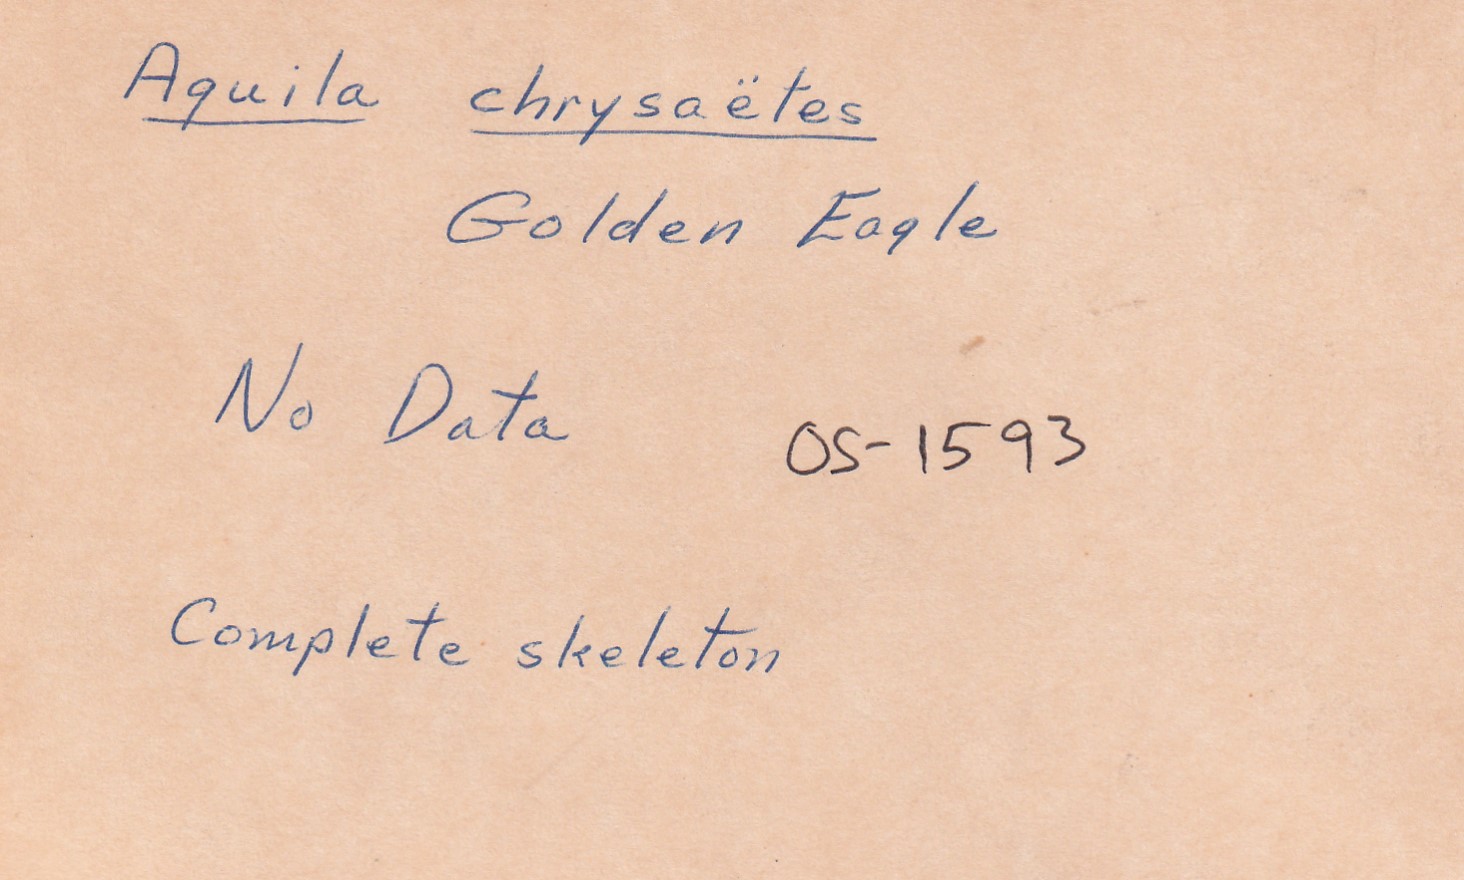 Aquila chrysaëtes
Golden Eagle
No Data OS-1593
Complete skeleton